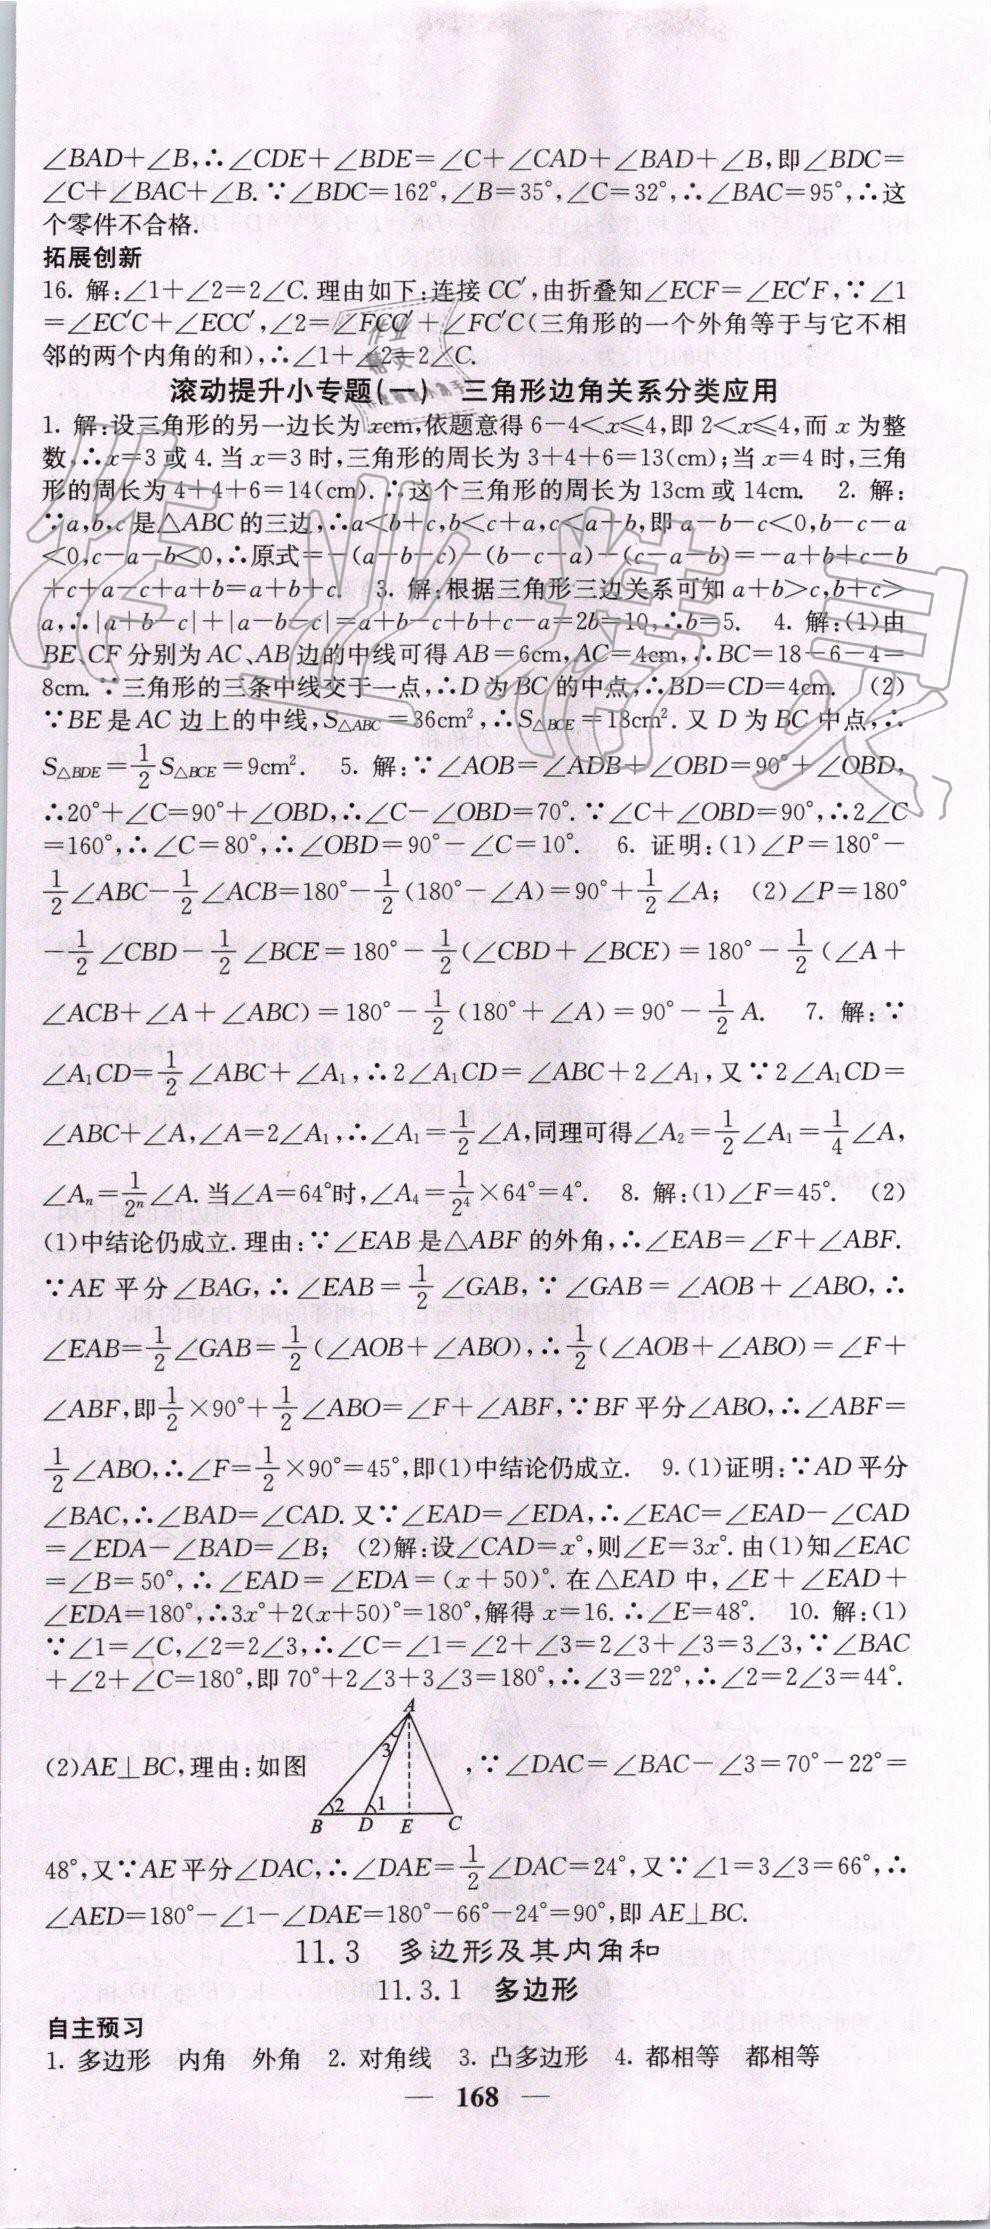 ∠BAD+∠B,∴∠CDE+∠BDE=∠C+∠CAD+∠BAD+∠B,即∠BDC=
∠C+∠BAC+∠B.∵∠BDC=162°,∠B=35°,∠C=32°,∴∠BAC=95°,∴这
个零件不合格.
拓展创新
16. 解:∠1+∠2=2∠C.理由如下:连接 CC′,由折叠知∠ECF=∠EC′F,∵∠1
=∠EC′C+∠ECC′,∠2=∠FCC′+∠FC′C(三角形的一个外角等于与它不相
邻的两个内角的和),∴∠1+∠2=2∠C.
滚动提升小专题(一) 三角形边角关系分类应用
1. 解:设三角形的另一边长为 xcm,依题意得 6-4<x≤4,即 2<x≤4,而 x 为整
数,∴x=3 或 4.当 x=3 时,三角形的周长为 3+4+6=13(cm);当 x=4 时,三角
形的周长为 4+4+6=14(cm).∴这个三角形的周长为 13cm 或 14cm. 2. 解:
∵a,b,c 是△ABC 的三边,∴a<b+c,b<c+a,c<a+b,即 a-b-c<0,b-c-a
<0,c-a-b<0,∴原式=-(a-b-c)-(b-c-a)-(c-a-b)=-a+b+c-b
+c+a-c+a+b=a+b+c. 3. 解:根据三角形三边关系可知 a+b>c,b+c>
a,∴|a+b-c|+|a-b-c|=a+b-c+b+c-a=2b=10,∴b=5. 4. 解:(1)由
BE、CF 分别为 AC、AB 边的中线可得 AB=6cm,AC=4cm,∴BC=18-6-4=
8cm.∵三角形的三条中线交于一点,∴D 为 BC 的中点,∴BD=CD=4cm. (2)
∵BE 是 AC 边上的中线,S△ABC=36cm²,∴S△BCE=18cm².又 D 为 BC 中点,∴
S△BDE=1/2 S△BCE=9cm². 5. 解:∵∠AOB=∠ADB+∠OBD=90°+∠OBD,
∴20°+∠C=90°+∠OBD,∴∠C-∠OBD=70°.∵∠C+∠OBD=90°,∴2∠C
=160°,∴∠C=80°,∴∠OBD=90°-∠C=10°. 6. 证明:(1)∠P=180°-
1/2∠ABC-1/2∠ACB=180°-1/2(180°-∠A)=90°+1/2∠A; (2)∠P=180°
-1/2∠CBD-1/2∠BCE=180°-1/2(∠CBD+∠BCE)=180°-1/2(∠A+
∠ACB+∠A+∠ABC)=180°-1/2(180°+∠A)=90°-1/2A. 7. 解:∵
∠A₁CD=1/2∠ABC+∠A₁,∴2∠A₁CD=∠ABC+2∠A₁,又∵2∠A₁CD=
∠ABC+∠A,∠A=2∠A₁,∴∠A₁=1/2∠A,同理可得∠A₂=1/2∠A₁=1/4∠A,
∠Aₙ=1/2ⁿ∠A.当∠A=64°时,∠A₄=1/2⁴×64°=4°. 8. 解:(1)∠F=45°. (2)
(1)中结论仍成立.理由:∵∠EAB 是△ABF 的外角,∴∠EAB=∠F+∠ABF.
∵AE 平分∠BAG,∴∠EAB=1/2∠GAB,∵∠GAB=∠AOB+∠ABO,∴
∠EAB=1/2∠GAB=1/2(∠AOB+∠ABO),∴1/2(∠AOB+∠ABO)=∠F+
∠ABF,即1/2×90°+1/2∠ABO=∠F+∠ABF,∵BF 平分∠ABO,∴∠ABF=
1/2∠ABO,∴∠F=1/2×90°=45°,即(1)中结论仍成立. 9.(1)证明:∵AD 平分
∠BAC,∴∠BAD=∠CAD.又∵∠EAD=∠EDA,∴∠EAC=∠EAD-∠CAD
=∠EDA-∠BAD=∠B; (2)解:设∠CAD=x°,则∠E=3x°.由(1)知∠EAC
=∠B=50°,∴∠EAD=∠EDA=(x+50)°.在△EAD 中,∠E+∠EAD+
∠EDA=180°,∴3x°+2(x+50)°=180°,解得 x=16.∴∠E=48°. 10. 解:(1)
∵∠1=∠C,∠2=2∠3,∴∠C=∠1=∠2+∠3=2∠3+∠3=3∠3,∵∠BAC
+∠2+∠C=180°,即 70°+2∠3+3∠3=180°,∴∠3=22°,∴∠2=2∠3=44°.
A
3
(2)AE⊥BC,理由:如图 ,∵∠DAC=∠BAC-∠3=70°-22°=
2 1
B D E C
48°,又∵AE 平分∠DAC,∴∠DAE=1/2∠DAC=24°,又∵∠1=3∠3=66°,∴
∠AED=180°-∠1-∠DAE=180°-66°-24°=90°,即 AE⊥BC.
11.3 多边形及其内角和
11.3.1 多边形
自主预习
1. 多边形 内角 外角 2. 对角线 3. 凸多边形 4. 都相等 都相等
— 168 —